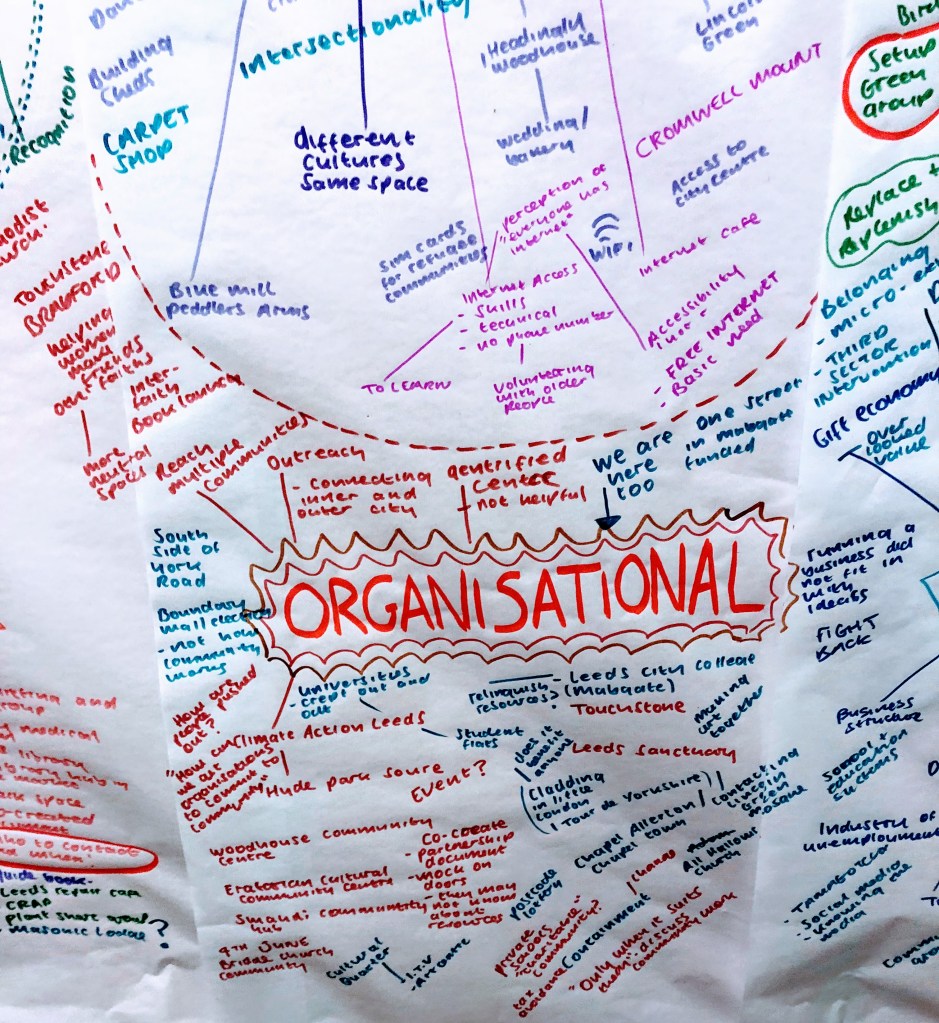 Building
Sheds
CARPET
SHOP
Recognition
Intersectionality
different
cultures
same space
Headingly
Woodhouse
wedding/
bakery
Lincoln
Green
CROMWELL MOUNT
Access to
city centre
Setup
Green
Group
Replace +
Replenish
perception of
"everyone has
internet"
WiFi
Internet cafe
sim cards
for refugee
communities
Blue mill
Peddlers Arms
Internet Access
- skills
- technical
- no phone number
TO LEARN
Volunteering
with older
people
Accessibility
- FREE INTERNET
- Basic need
Touchstone
BRADFORD
helping
women
make
friends
faiths
Inter-
faith
Book launch
more
neutral
spaces
Reach
multiple
communities
Outreach
- connecting
inner and
outer city
gentrified
centre
- not helpful
we are
here
too
one street
in mabgate
funded
Belonging
- THIRD
SECTOR
intervention
Gift economy
over
looked
value
South
side of
York
Road
Boundary
- not how
community
works
ORGANISATIONAL
running a
business did
not fit in
with
FIGHT
BACK
Business
structure
School +
education
Industry of
unemployment
- Social media
- Knowing the
media
How are
people pushed
out?
universities
- crept out and
out
student
flats
Climate Action Leeds
relinquish
resources?
- Leeds City College
(Mabgate)
Touchstone
making
art
together
does it
benefit
anyone
Leeds sanctuary
"How
organisations
to commit to
community"
Hyde park source
Event?
(Cladding
in little
London
(Tour de Yorkshire)
contacting
Lincoln
Green
mosque
Chapel Allerton/
Chapel town
All Hallows
church
Woodhouse community
centre
Co-create
- partnership
document
- knock on
doors
- they may
not know
about
resources
Eratarian cultural
community centre
Smandi community
hub
4TH JUNE
Bridge church
community
cultural
quarter
postcode
lottery
private
sandors
"charitable"
community?
tax
avoidance
Containment
"Only when it suits
them" - discuss
community work
and medical
library
guide book-
Leeds repair cafe
CRAP
Plant share
- Masonic Lodge?